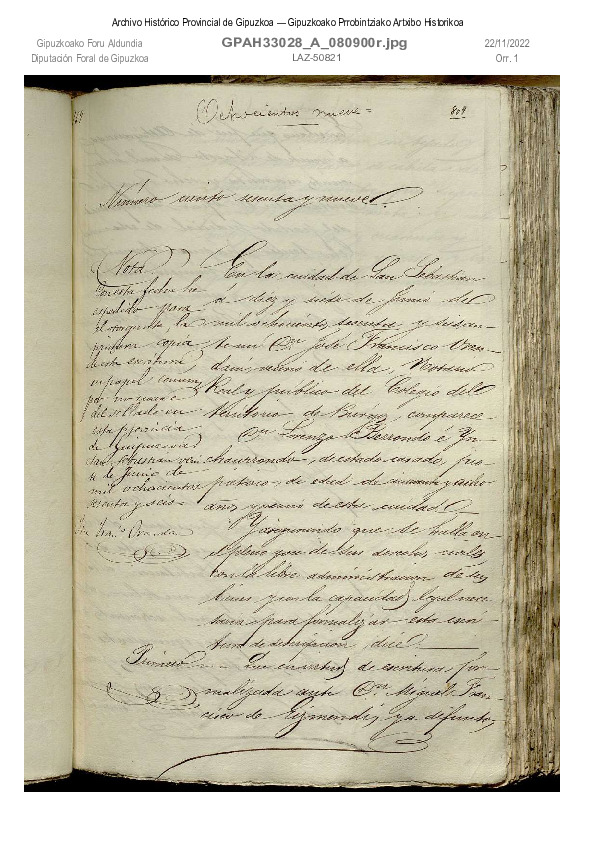 Archivo Histórico Provincial de Gipuzkoa — Gipuzkoako Prrobintziako Artxibo Historikoa
Gipuzkoako Foru Aldundia
Diputación Foral de Gipuzkoa
GPAH33028_A_080900r.jpg
LAZ-50821
22/11/2022
Orr. 1
Ochocientos nueve =
809
Número ciento sesenta y nueve
Nota
Con esta fecha he
expedido para
el otorgante la
primera copia
de esta escritura
en papel comun
por no haber
del sellado en
esta provincia
de Guipuzcoa
San Sebastian vein
te de Junio de
mil ochocientos
sesenta y seis
En la ciudad de San Sebastian
á diez y siete de Junio de
mil ochocientos sesenta y seis an-
te mi Dn. José Francisco Oren-
dain, vecino de ella, Notario
Real y publico del Colegio del
territorio de Burgos, comparece
Dn. Lorenzo Berrondo é Yn-
chaurrondo, de estado casado, pro-
pietario, de edad de cincuenta y ocho
años y vecino de esta ciudad
Y asegurando que se halla en
el pleno goce de sus derechos civiles
con la libre administracion de sus
bienes y con la capacidad legal nece-
saria para formalizar esta escri-
tura de declaracion, dice:
Primero
Que en virtud de escritura for-
malizada ante Dn. Miguel Fran-
cisco de Eizmendi, ya difunto,